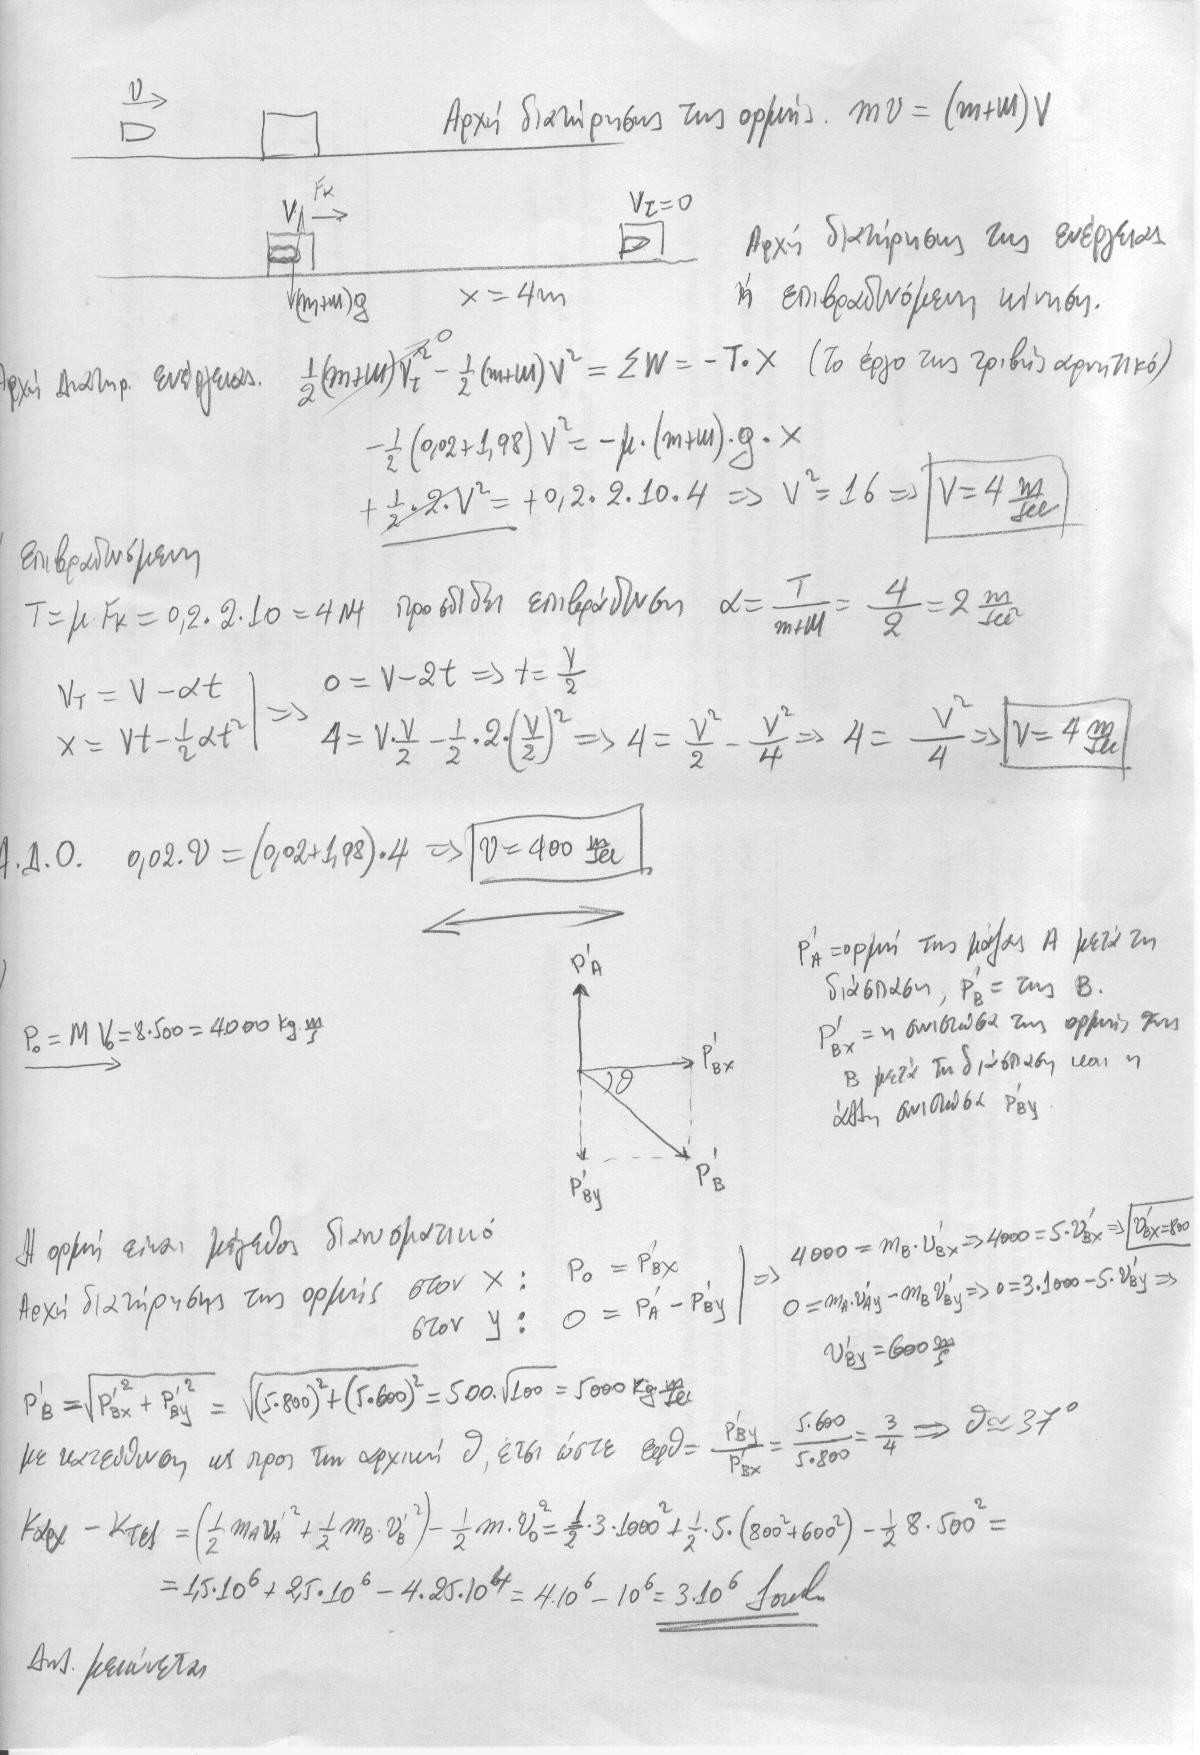 υ
Αρχή διατήρησης της ορμής. mυ = (m+M)V
V Fκ
Vτ=0
(m+M)g
x = 4m
Αρχή διατήρησης της ενέργειας
ή επιβραδυνόμενη κίνηση.
Αρχή Διατηρ. ενέργειας. 1/2 (m+M)Vτ² - 1/2 (m+M)V² = ΣW = -T·X (το έργο της τριβής αρνητικό)
0
-1/2 (0,02+1,98)V² = -μ·(m+M)·g·x
+1/2·2·V² = +0,2·2·10·4 => V²=16 => V=4 m/sec
επιβραδυνόμενη
T=μ·Fκ = 0,2·2·10 = 4N προσδίδει επιβράδυνση α = T/(m+M) = 4/2 = 2 m/sec²
Vτ = V-αt => 0 = V-2t => t = V/2
x = Vt-1/2 αt² 4=V·V/2 - 1/2·2·(V/2)² => 4 = V²/2 - V²/4 => 4 = V²/4 => V=4 m/sec
Α.Δ.Ο. 0,02·υ = (0,02+1,98)·4 => υ=400 m/sec
P'A = ορμή της μάζας Α μετά τη
διάσπαση, P'B = της Β.
P'Bx = η συνιστώσα της ορμής της
Β μετά τη διάσπαση και η
άλλη συνιστώσα P'By.
Po = M Vo = 8·500 = 4000 kg m/s
P'A
P'Bx
θ
P'By
P'B
Η ορμή είναι μέγεθος διανυσματικό
Αρχή διατήρησης της ορμής στον x: Po = P'Bx => 4000 = mB·υ'Bx => 4000 = 5·υ'Bx => υ'Bx=800
στον y: 0 = P'A - P'By 0=mA·υ'Ay - mB υ'By => 0=3·1000-5·υ'By =>
υ'By = 600 m/s
P'B = √(P'Bx² + P'By²) = √((5·800)²+(5·600)²) = 500·√100 = 5000 kg m/sec
με κατεύθυνση ως προς την αρχική θ, έτσι ώστε εφθ = P'By/P'Bx = 5·600/5·800 = 3/4 => θ≃37°
Kαρχ - Kτελ = (1/2 mA υ'A² + 1/2 mB·υ'B²) - 1/2 m·υo² = 1/2·3·1000² + 1/2·5·(800²+600²) - 1/2 8·500² =
= 1,5·10⁶ + 2,5·10⁶ - 4·25·10⁴ = 4·10⁶ - 10⁶ = 3·10⁶ Joule
Δηλ. μειώνεται